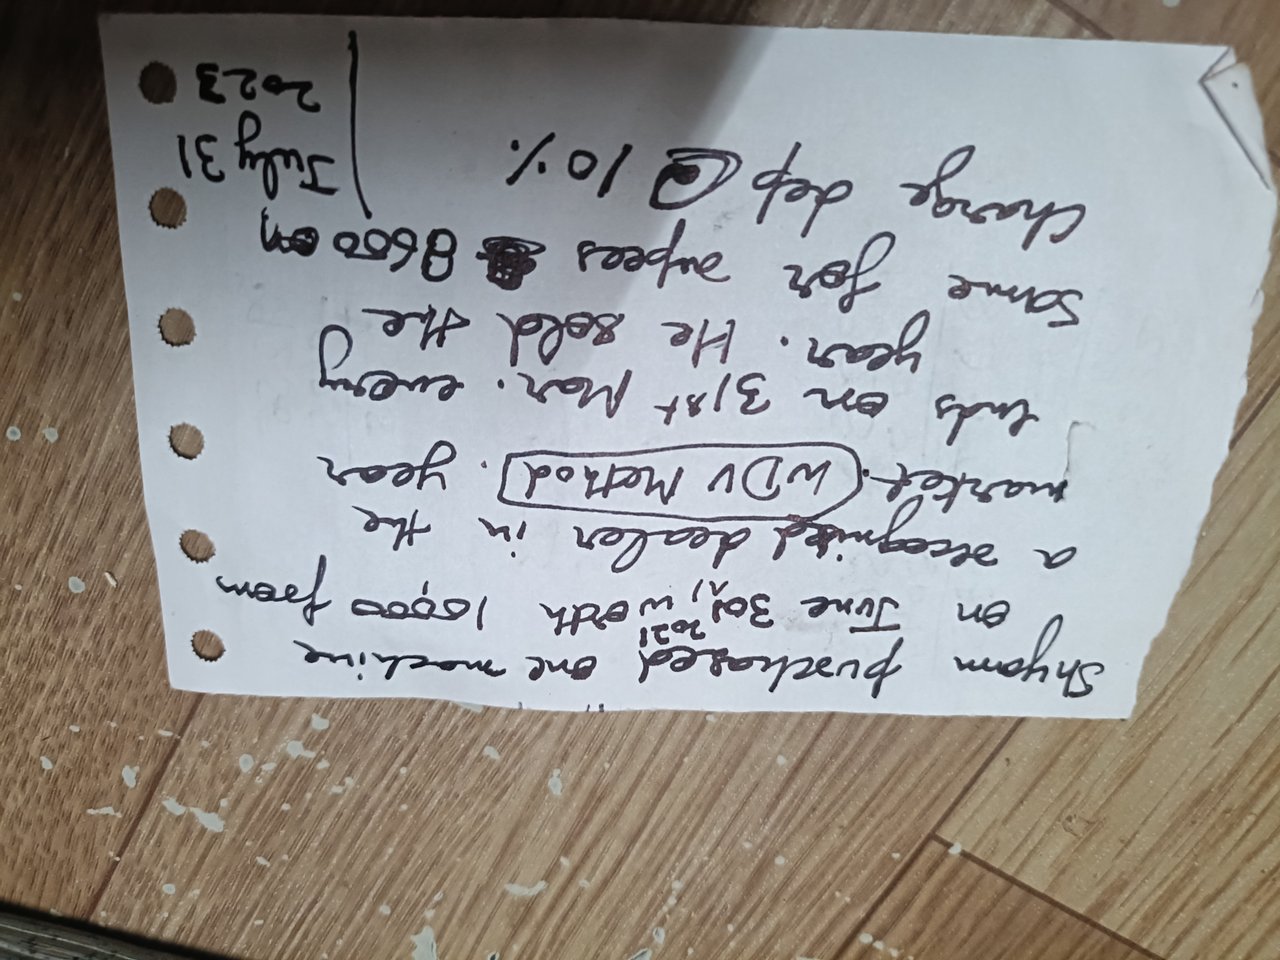 Shyam purchased one machine
on June 30th, 2021, worth 10,000 from
a recognised dealer in the
market. WDV Method. year
ends on 31st Mar. every
year. He sold the
same for rupees 8600 on
July 31
2023
Charge dep @ 10%